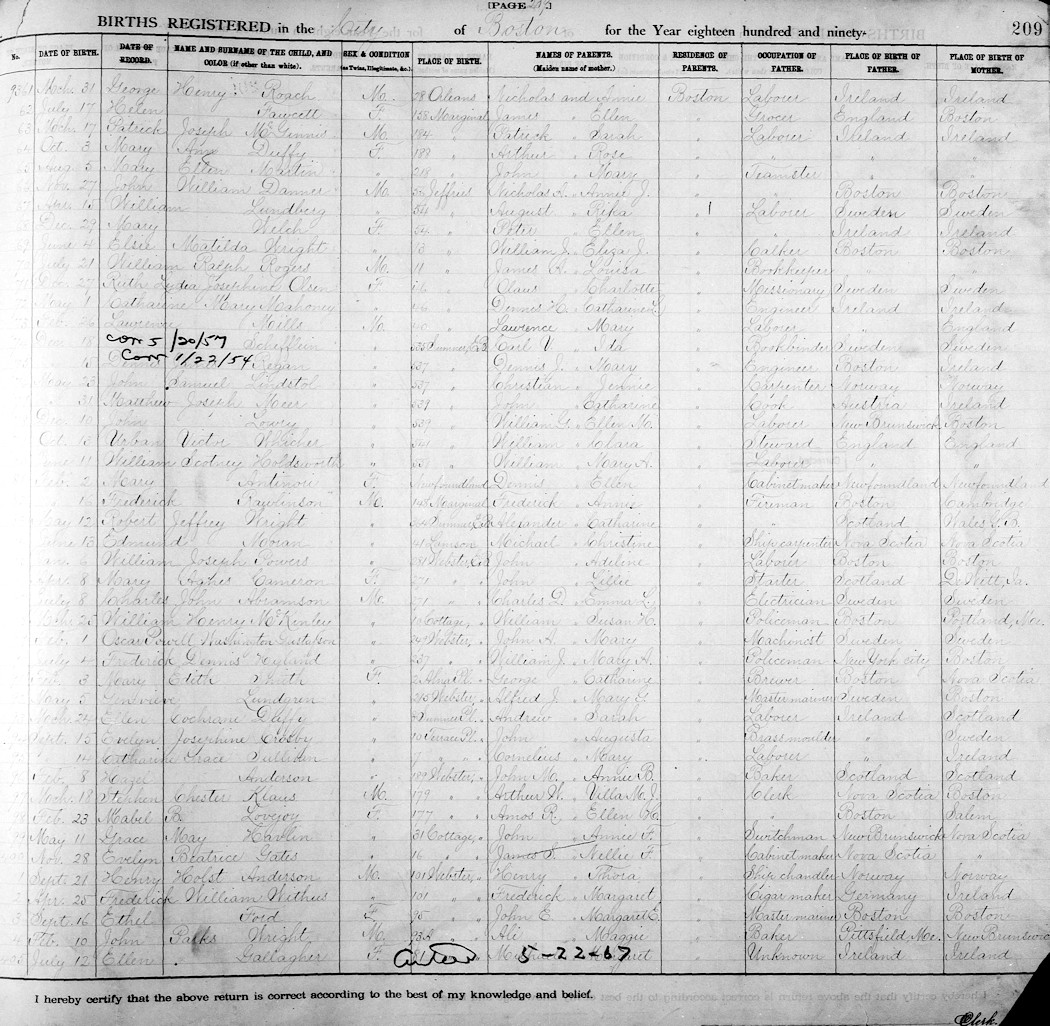 [PAGE
BIRTHS REGISTERED in the City of Boston for the Year eighteen hundred and ninety- 209
No. DATE OF BIRTH. DATE OF RECORD. NAME AND SURNAME OF THE CHILD, AND COLOR (if other than white). SEX & CONDITION (as Twins, Illegitimate, &c.) PLACE OF BIRTH. NAMES OF PARENTS. (Maiden name of mother.) RESIDENCE OF PARENTS. OCCUPATION OF FATHER. PLACE OF BIRTH OF FATHER. PLACE OF BIRTH OF MOTHER.
9361 Mch. 31 George Henry Roach M. 28 Orleans Nicholas and Annie Boston Laborer Ireland Ireland
62 July 17 Helen Fawcett F. 158 Marginal James " Ellen " Grocer England Boston
63 Mch. 17 Patrick Joseph McGinnis M. 184 " Patrick " Sarah " Laborer Ireland Ireland
Oct. 3 Mary Ann Duffy F. 188 " Arthur " Rose " " " "
Aug. 5 Mary Ellen Martin " 218 " John " Mary " Teamster " "
Nov. 27 John William Danner M. Jeffries Nicholas A. " Annie J. " " Boston Boston
Apr. 15 William Lundberg " 54 " August " Rika " Laborer Sweden Sweden
Dec. 29 Mary Welch F. 54 " Peter " Ellen " " Ireland Ireland
June 4 Elsie Matilda Wright " " William J. " Eliza J. " Calker Boston Boston
July 21 William Ralph Rogers M. 11 " James R. " Louisa " Bookkeeper " "
27 Ruth Lydia Josephine Olsen F. 16 " Claus " Charlotte " Missionary Sweden Sweden
May 1 Catharine Mary Mahoney " " Dennis H. " Catharine " Engineer Ireland Ireland
Feb. 26 Lawrence Mills M. 40 " Lawrence " Mary " Laborer " "
Dec. 18 corr 5/20/57 Schefflein " 535 Sumner, E.B. Carl V. " Ida " Bookbinder Sweden Sweden
15 Corr 1/22/54 Dennis Regan " 537 " Dennis J. " Mary " Engineer Boston Ireland
May 23 John Samuel Lindstol " 537 " Christian " Jennie " Carpenter Norway Norway
" 31 Matthew Joseph Meer " 539 " John " Catharine " Cook Austria Ireland
Dec. 10 John Lowry " 539 " William G. " Ellen M. " Laborer New Brunswick Boston
Oct. 13 Urban Victor Whicher " 541 " William " Clara " Steward England England
June 11 William Scotney Holdsworth " " William " Mary A. " Laborer " "
Feb. 2 Mary Antinori F. Newfoundland Dennis " Ellen " Cabinetmaker Newfoundland Newfoundland
" 16 Frederick Rawlinson M. 148 Marginal Frederick " Annie " Fireman Boston Cambridge
May 12 Robert Jeffrey Wright " Sumner, E.B. Alexander " Catharine " " Scotland Wales
June 13 Edmund Moran " 41 Lamson Michael " Christine " Ship carpenter Nova Scotia Nova Scotia
6 William Joseph Powers " Webster, E.B. John " Adeline " Laborer Boston Boston
Apr. 8 Mary Cameron F. 271 " John " Lillie " Starter Scotland DeWitt, Ia.
July 8 Charles John Abramson M. 271 " Charles D. " Emma L. " Electrician Sweden Sweden
Mch. 25 William Henry McKinley " Cottage, " William " Susan H. " Policeman Boston Portland, Me.
Feb. 1 Oscar Powell Washington Gustafson " Webster, " John A. " Mary " Machinist Sweden Sweden
July 4 Frederick Dennis Hyland " 237 " William J. " Mary A. " Policeman New York city Boston
Feb. 3 Mary Edith Smith F. 2 Alna Pl. George " Catharine " Brewer Boston Nova Scotia
May 5 Genevieve Lundgren " 215 Webster, Alfred J. " Mary G. " Master mariner Sweden Boston
Mch. 24 Ellen Cochrane Duffy " Sumner Pl. Andrew " Sarah " Laborer Ireland Scotland
Sept. 15 Evelyn Josephine Crosby " 10 Terrace Pl. John " Augusta " Brass moulder " Sweden
" 14 Catharine Grace Sullivan " 7 " Cornelius " Mary " Laborer " Ireland
Feb. 8 Hazel Anderson " 189 Webster, John M. " Annie B. " Baker Scotland Scotland
Mch. 18 Stephen Chester Klaus M. 179 " Arthur W. " Villa M. J. " Clerk Nova Scotia Boston
98 Feb. 23 Mabel B. Lovejoy F. 177 " Amos R. " Ellen H. " " Boston Salem
99 May 11 Grace May Havlin " 31 Cottage, John " Annie F. " Switchman New Brunswick Nova Scotia
Nov. 28 Evelyn Beatrice Gates " 16 " James S. " Nellie F. " Cabinet maker Nova Scotia "
1 Sept. 21 Henry Hofst Anderson M. 101 Webster, Henry " Thora " Ship chandler Norway Norway
2 Apr. 25 Frederick William Withus " 101 " Frederick " Margaret " Cigar maker Germany Ireland
3 Sept. 16 Ethel Ford F. 95 " John E. " Margaret E. " Master mariner Boston Boston
4 Feb. 10 John Parks Wright M. 93A " Ali " Maggie " Baker Pittsfield, Me. New Brunswick
July 12 Ellen Gallagher F. 5-22-67 " Unknown Ireland Ireland
I hereby certify that the above return is correct according to the best of my knowledge and belief.
Clerk.